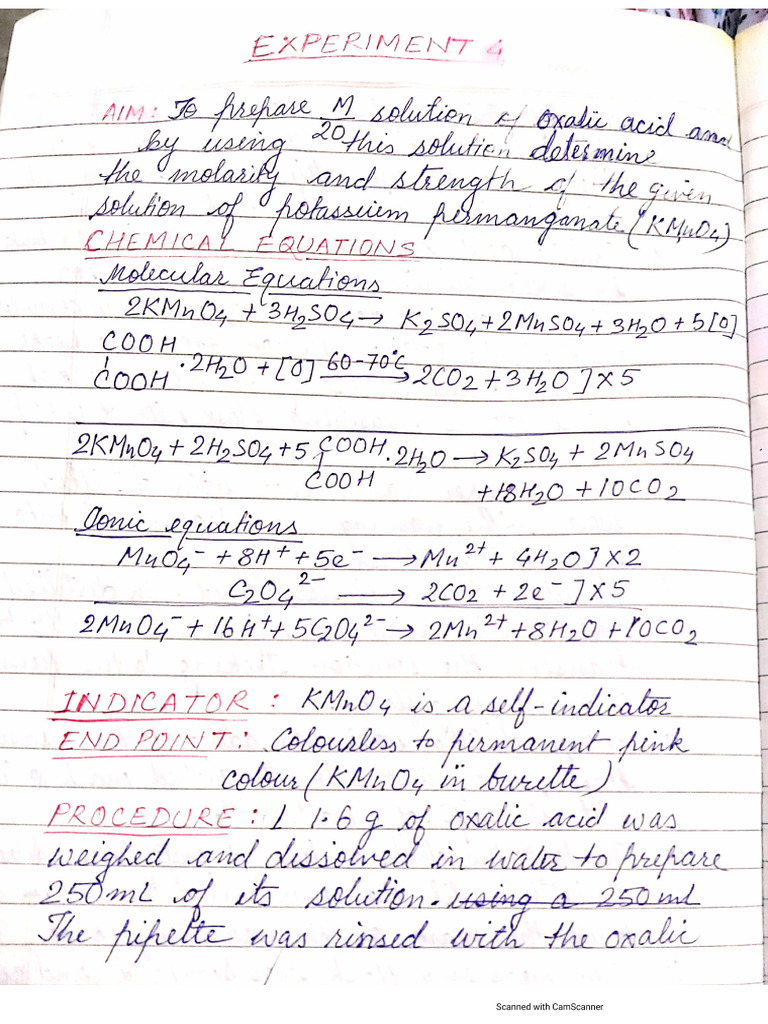 EXPERIMENT 4
AIM: To prepare M/20 solution of oxalic acid and
by using this solution determine
the molarity and strength of the given
solution of potassium permanganate (KMnO4)
CHEMICAL EQUATIONS
Molecular Equations
2KMnO4 + 3H2SO4 → K2SO4 + 2MnSO4 + 3H2O + 5[O]
COOH
COOH · 2H2O + [O] 60-70°C → 2CO2 + 3H2O ] × 5
2KMnO4 + 2H2SO4 + 5 COOH · 2H2O → K2SO4 + 2MnSO4
COOH + 18H2O + 10CO2
Ionic equations
MnO4⁻ + 8H⁺ + 5e⁻ → Mn²⁺ + 4H2O ] × 2
C2O4²⁻ → 2CO2 + 2e⁻ ] × 5
2MnO4⁻ + 16H⁺ + 5C2O4²⁻ → 2Mn²⁺ + 8H2O + 10CO2
INDICATOR : KMnO4 is a self-indicator
END POINT : Colourless to permanent pink
colour (KMnO4 in burette)
PROCEDURE : 1.6 g of oxalic acid was
weighed and dissolved in water to prepare
250mL of its solution. using a 250ml
The pipette was rinsed with the oxalic
Scanned with CamScanner